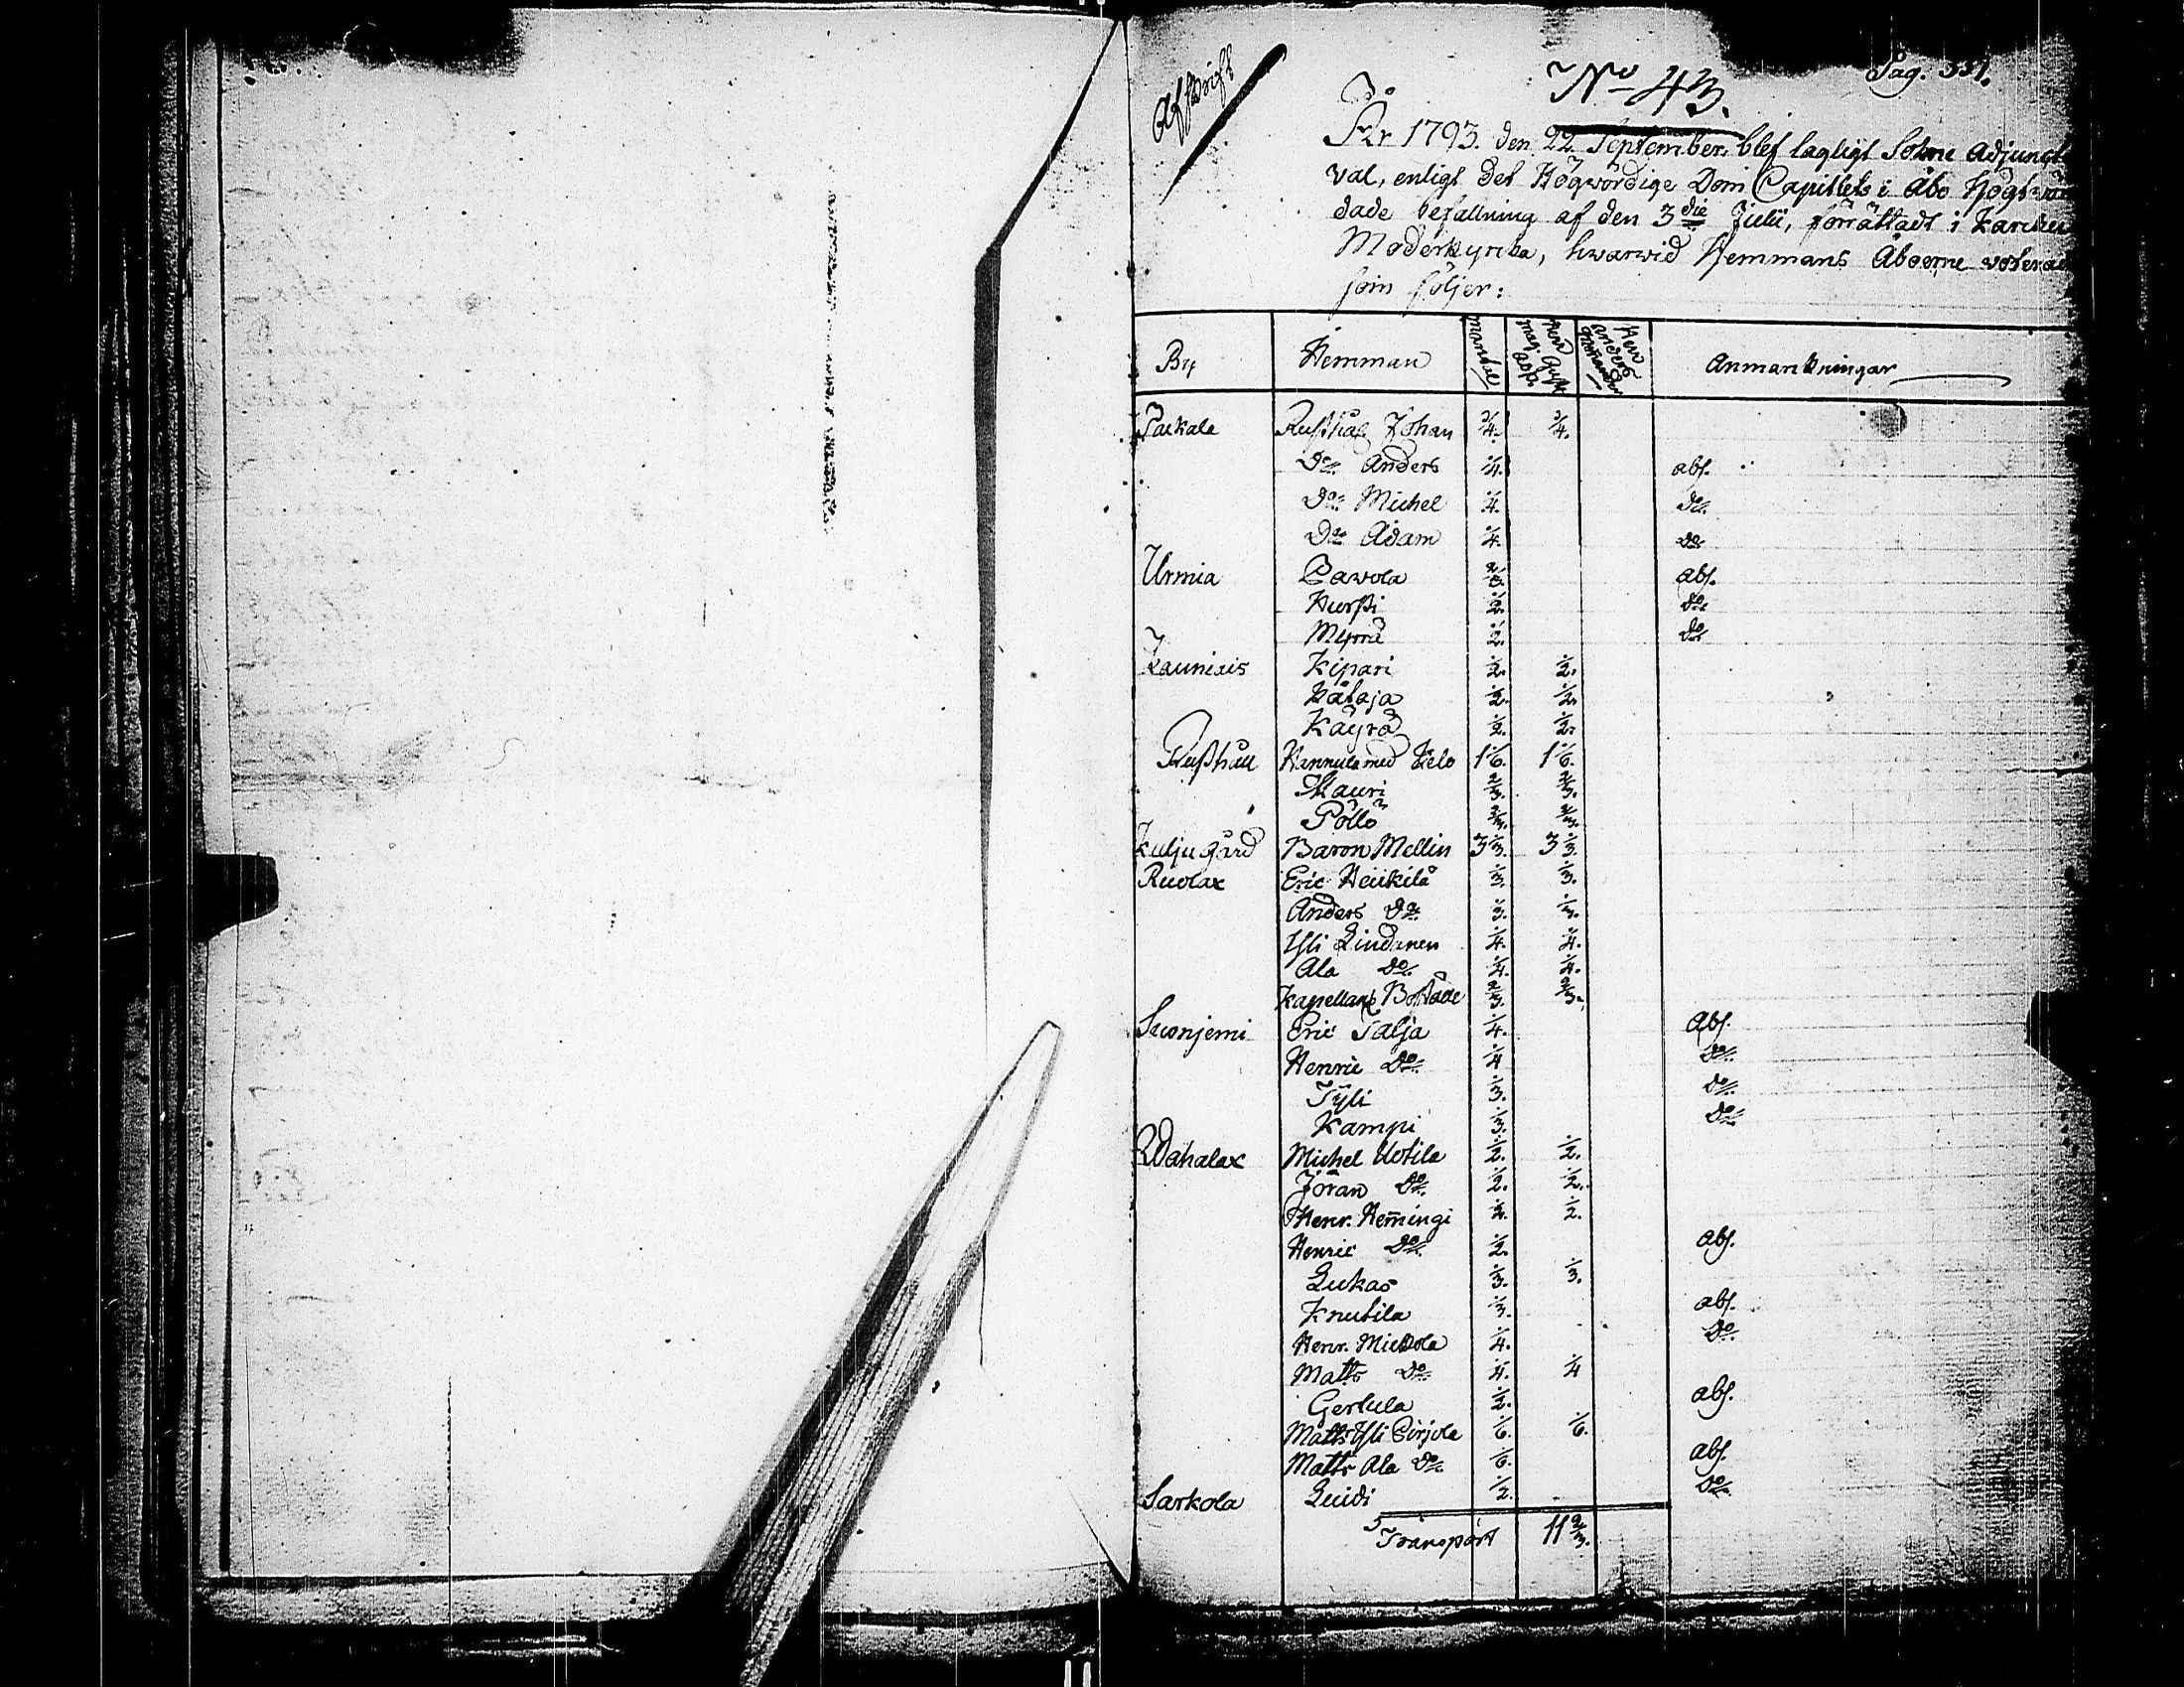 Afskrift
No 43.
Pag. 551.
År 1793. den 22 September, blef lagligt Sokne Adjunct
val, enligt det Högwördige Dom Capitlets i Åbo Högt wör
dade befallning af den 3 die Julii, förrättadt i Karcku
Moderkyrka, hwarwid Hemmans Åboerne voterad
som följer:
By Hemman Mantal Herr Mag. Gust. Asp. Herr Anders Anmärkningar
Palkala Rusthål. Johan 3/4. 3/4.
Do Anders 1/4. abs.
Do Michel 1/4. do
Do Adam 1/4. do
Urmia Pavola 2/3. abs.
Kurssi 1/2. do
Myrrä 1/2. do
Kauniais Kipari 1/2. 1/2.
Kataja 1/2. 1/2.
Käyrä 1/2. 1/2.
Hannula med Kelo 1 1/6. 1 1/6.
Skauri 2/3. 2/3.
Pöllö 2/3. 2/3.
Kulju gård Baron Mellin 3 1/3. 3 1/3.
Ruolax Eric Heickilä 1/3. 1/3.
Anders Do 1/3. 1/3.
Yli Lindanen 1/4. 1/4.
Ala Do 1/4. 1/4.
Kapellans Boställe 2/3. 2/3.
Suonjemi Eric Talja 1/4. Abs.
Henric Do 1/4 Do
Tyli 1/3. Do
Kampi 1/3. Do
Wahalax Michel Uotila 1/2. 1/2.
Jöran Do 1/2. 1/2.
Henr. Hemingi 1/2. 1/2.
Henric Do 1/2. abs.
Lukas 1/3. 1/3.
Knutila 1/3. abs.
Henr. Mickola 1/4. Do
Matts Do 1/4. 1/4
Gertula 1/2. abs.
Matts Yli Pirjola 1/6. 1/6.
Matts Ala Do 1/6. abs.
Sarkola Luidi 1/2. Do
Transport 11 2/3.